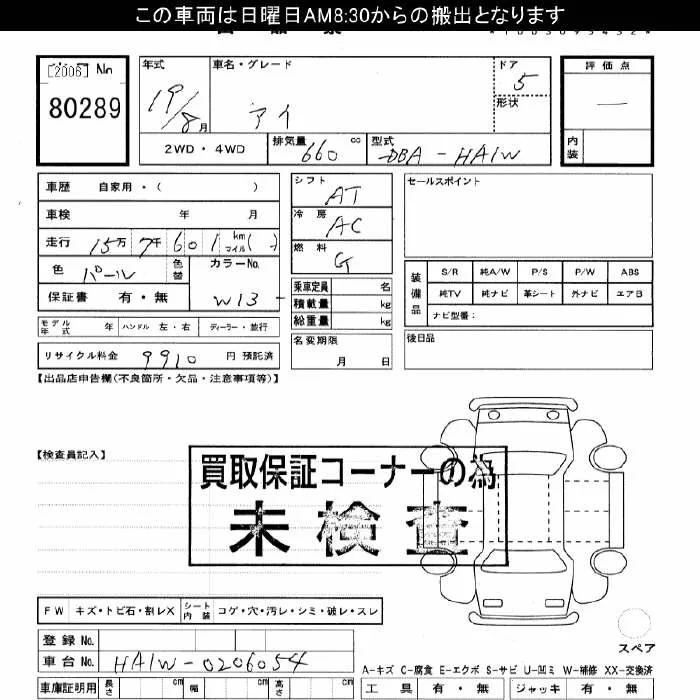 この車両は日曜日AM8:30からの搬出となります
[2006] No
80289
年式 車名・グレード ドア 評価点
19/8月 アイ 5 —
形状
2WD・4WD 排気量 660 cc 型式 DBA-HA1W 内装
車歴 自家用・( ) シフト AT セールスポイント
車検 年 月 冷房 AC
走行 15万7千601 km マイル( ) 燃料 G
色 パール 色替 カラーNo. W13
装備品 S/R 純A/W P/S P/W ABS
純TV 純ナビ 革シート 外ナビ エアB
ナビ型番:
保証書 有・無 乗車定員 名
積載量 kg
総重量 kg
モデル年式 年 ハンドル 左・右 ディーラー・並行
名変期限 月 日 後日品
リサイクル料金 9910 円 預託済
【出品店申告欄(不良箇所・欠品・注意事項等)】
【検査員記入】
買取保証コーナーの為
未検査
FW キズ・トビ石・割レX シート内装 コゲ・穴・汚レ・シミ・破レ・スレ
登録 No.
車台 No. HA1W-0206054
スペア
A-キズ C-腐食 E-エクボ S-サビ U-凹ミ W-補修 XX-交換済
車庫証明用 長さ cm 幅 cm 高さ cm 工具 有・無 ジャッキ 有・無